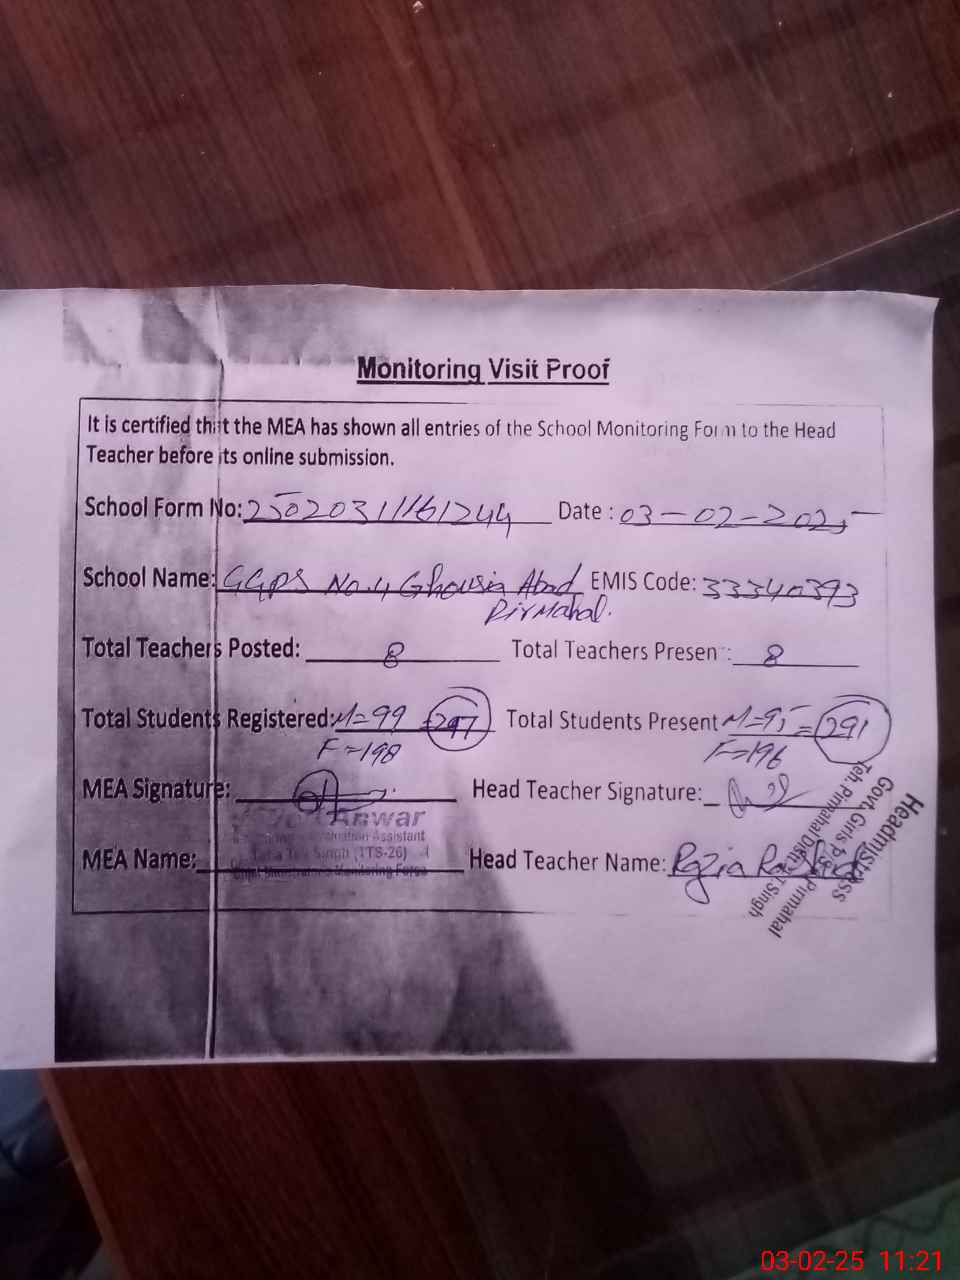 Monitoring Visit Proof
It is certified that the MEA has shown all entries of the School Monitoring Form to the Head
Teacher before its online submission.
School Form No: 25020311161244 Date : 03-02-2025
School Name: GGPS No.4 Ghousia Abad EMIS Code: 33340393
Pirmahal.
Total Teachers Posted: 8 Total Teachers Presen : 8
Total Students Registered: M=99 =297 Total Students Present M=95 = 291
F=198 F=196
MEA Signature: Head Teacher Signature:
Anwar
Evaluation Assistant
MEA Name: Tek Singh (TTS-26) Head Teacher Name: Razia Rashid
Monitoring Force
Headmistress
Govt. Girls Pirmahal
Teh. Pirmahal Distt. T.T Singh
03-02-25 11:21